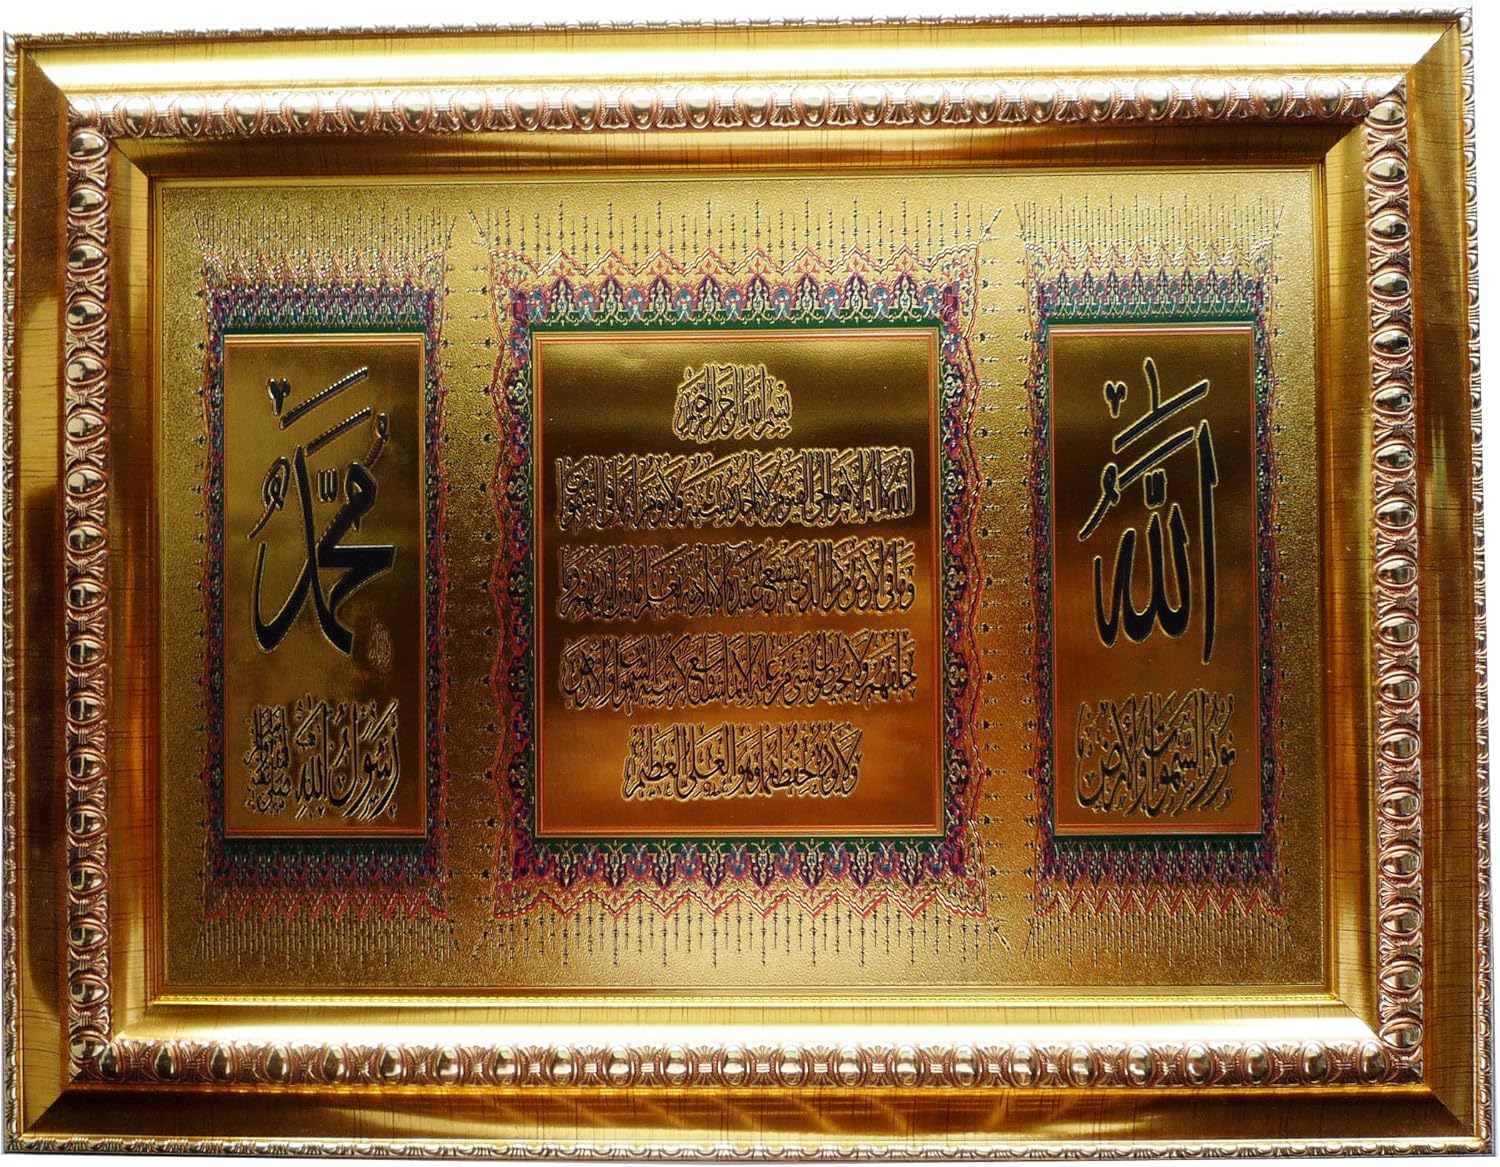 الله
نور السموات والارض
بسم الله الرحمن الرحيم
الله لا اله الا هو الحي القيوم لا تاخذه سنة ولا نوم له ما في السموات
وما في الارض من ذا الذي يشفع عنده الا باذنه يعلم ما بين ايديهم وما
خلفهم ولا يحيطون بشيء من علمه الا بما شاء وسع كرسيه السموات والارض
ولا يؤده حفظهما وهو العلي العظيم
محمد
رسول الله صلى الله عليه وسلم